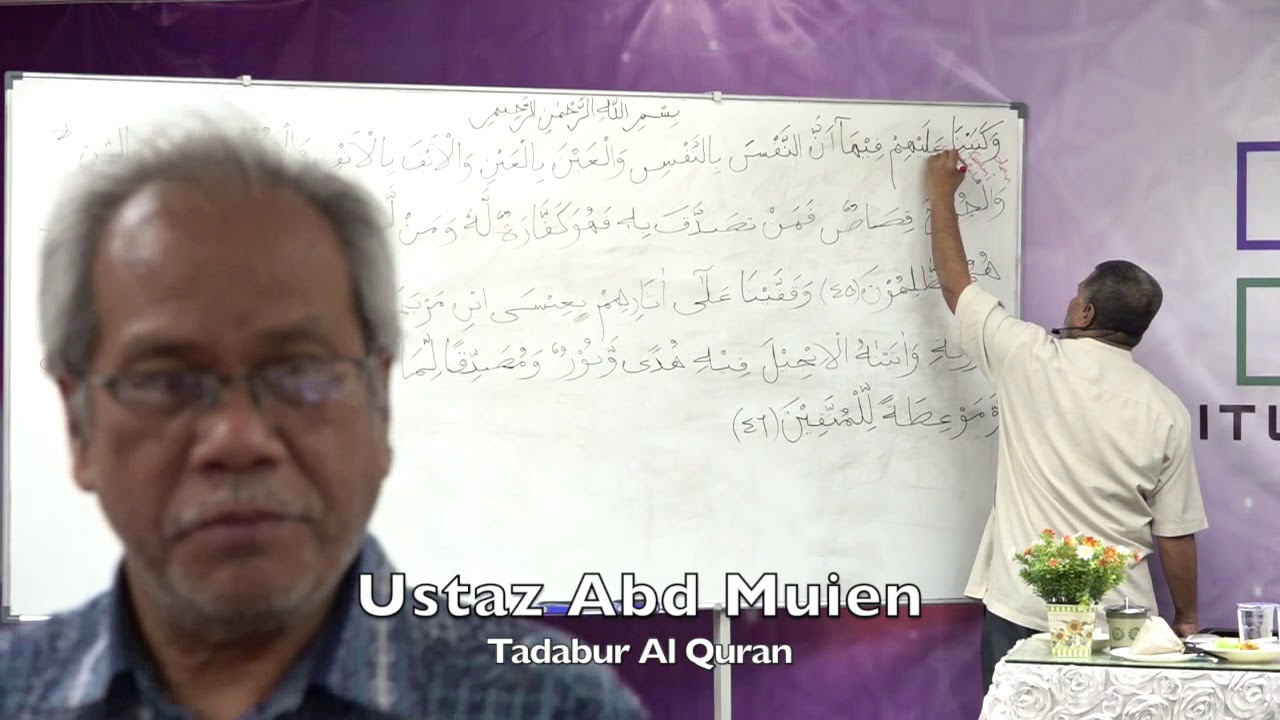 بِسْمِ اللّٰهِ الرَّحْمٰنِ الرَّحِيْمِ
وَكَتَبْنَا عَلَيْهِمْ فِيْهَآ اَنَّ النَّفْسَ بِالنَّفْسِ وَالْعَيْنَ بِالْعَيْنِ وَالْاَنْفَ بِالْاَنْفِ
قِصَاصٌ فَمَنْ تَصَدَّقَ بِهٖ فَهُوَ كَفَّارَةٌ لَّهٗ وَمَنْ
هُمُ الظّٰلِمُوْنَ (٤٥) وَقَفَّيْنَا عَلٰٓى اٰثَارِهِمْ بِعِيْسَى ابْنِ مَرْيَمَ
وَاٰتَيْنٰهُ الْاِنْجِيْلَ فِيْهِ هُدًى وَّنُوْرٌ وَمُصَدِّقًا لِّمَا
وَّمَوْعِظَةً لِّلْمُتَّقِيْنَ (٤٦)
ITU
Ustaz Abd Muien
Tadabur Al Quran